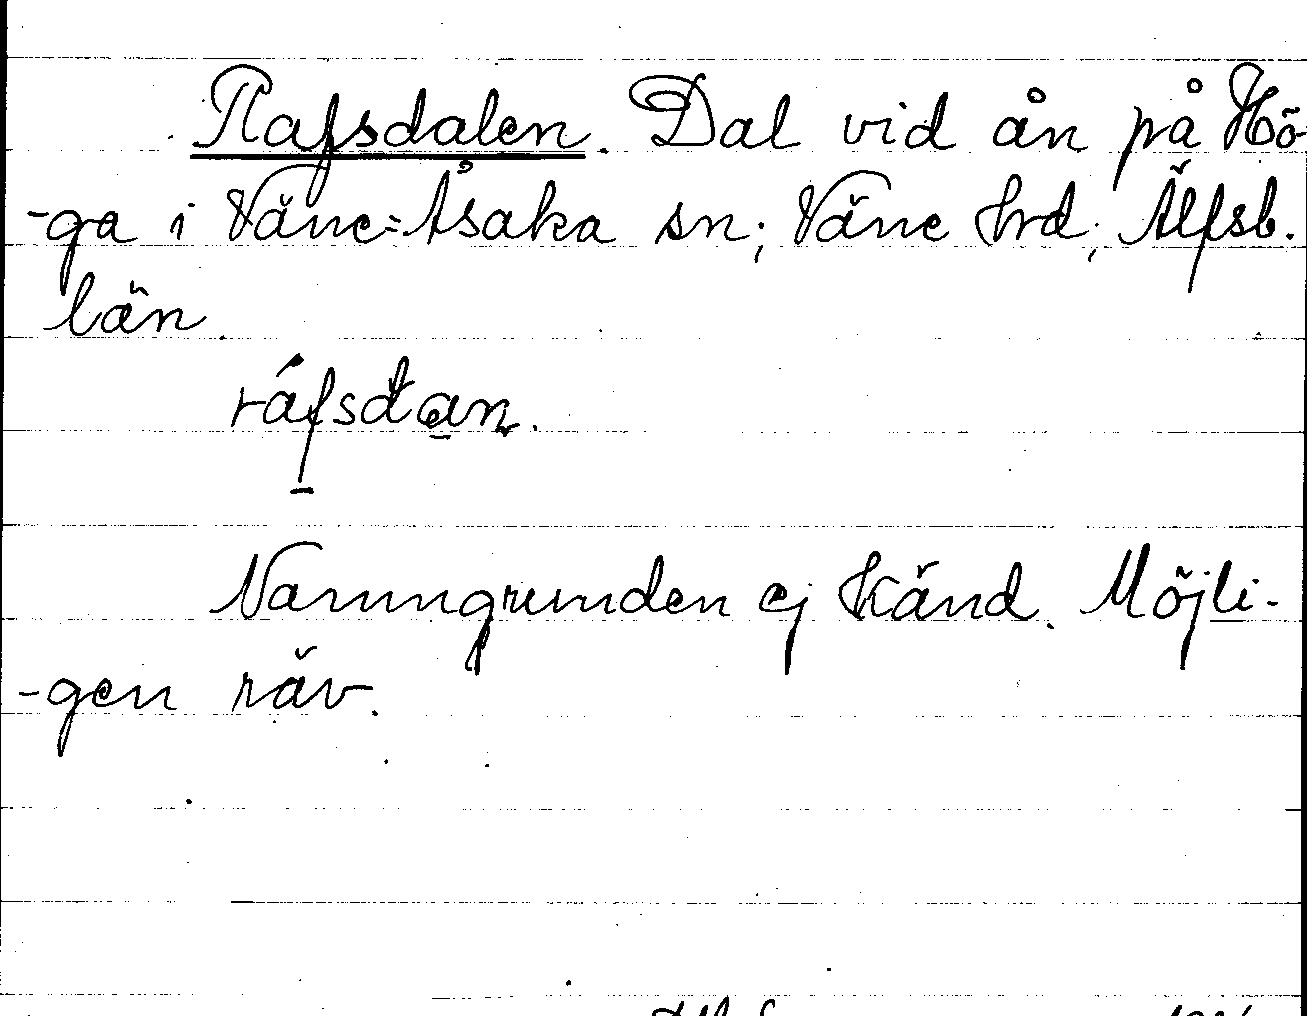 Rafsdalen. Dal vid ån på Hö-
-ga i Väne=Åsaka sn; Väne hrd; Älfsb.
län.
ráfsdan.
Namngrunden ej känd. Möjli-
-gen räv.